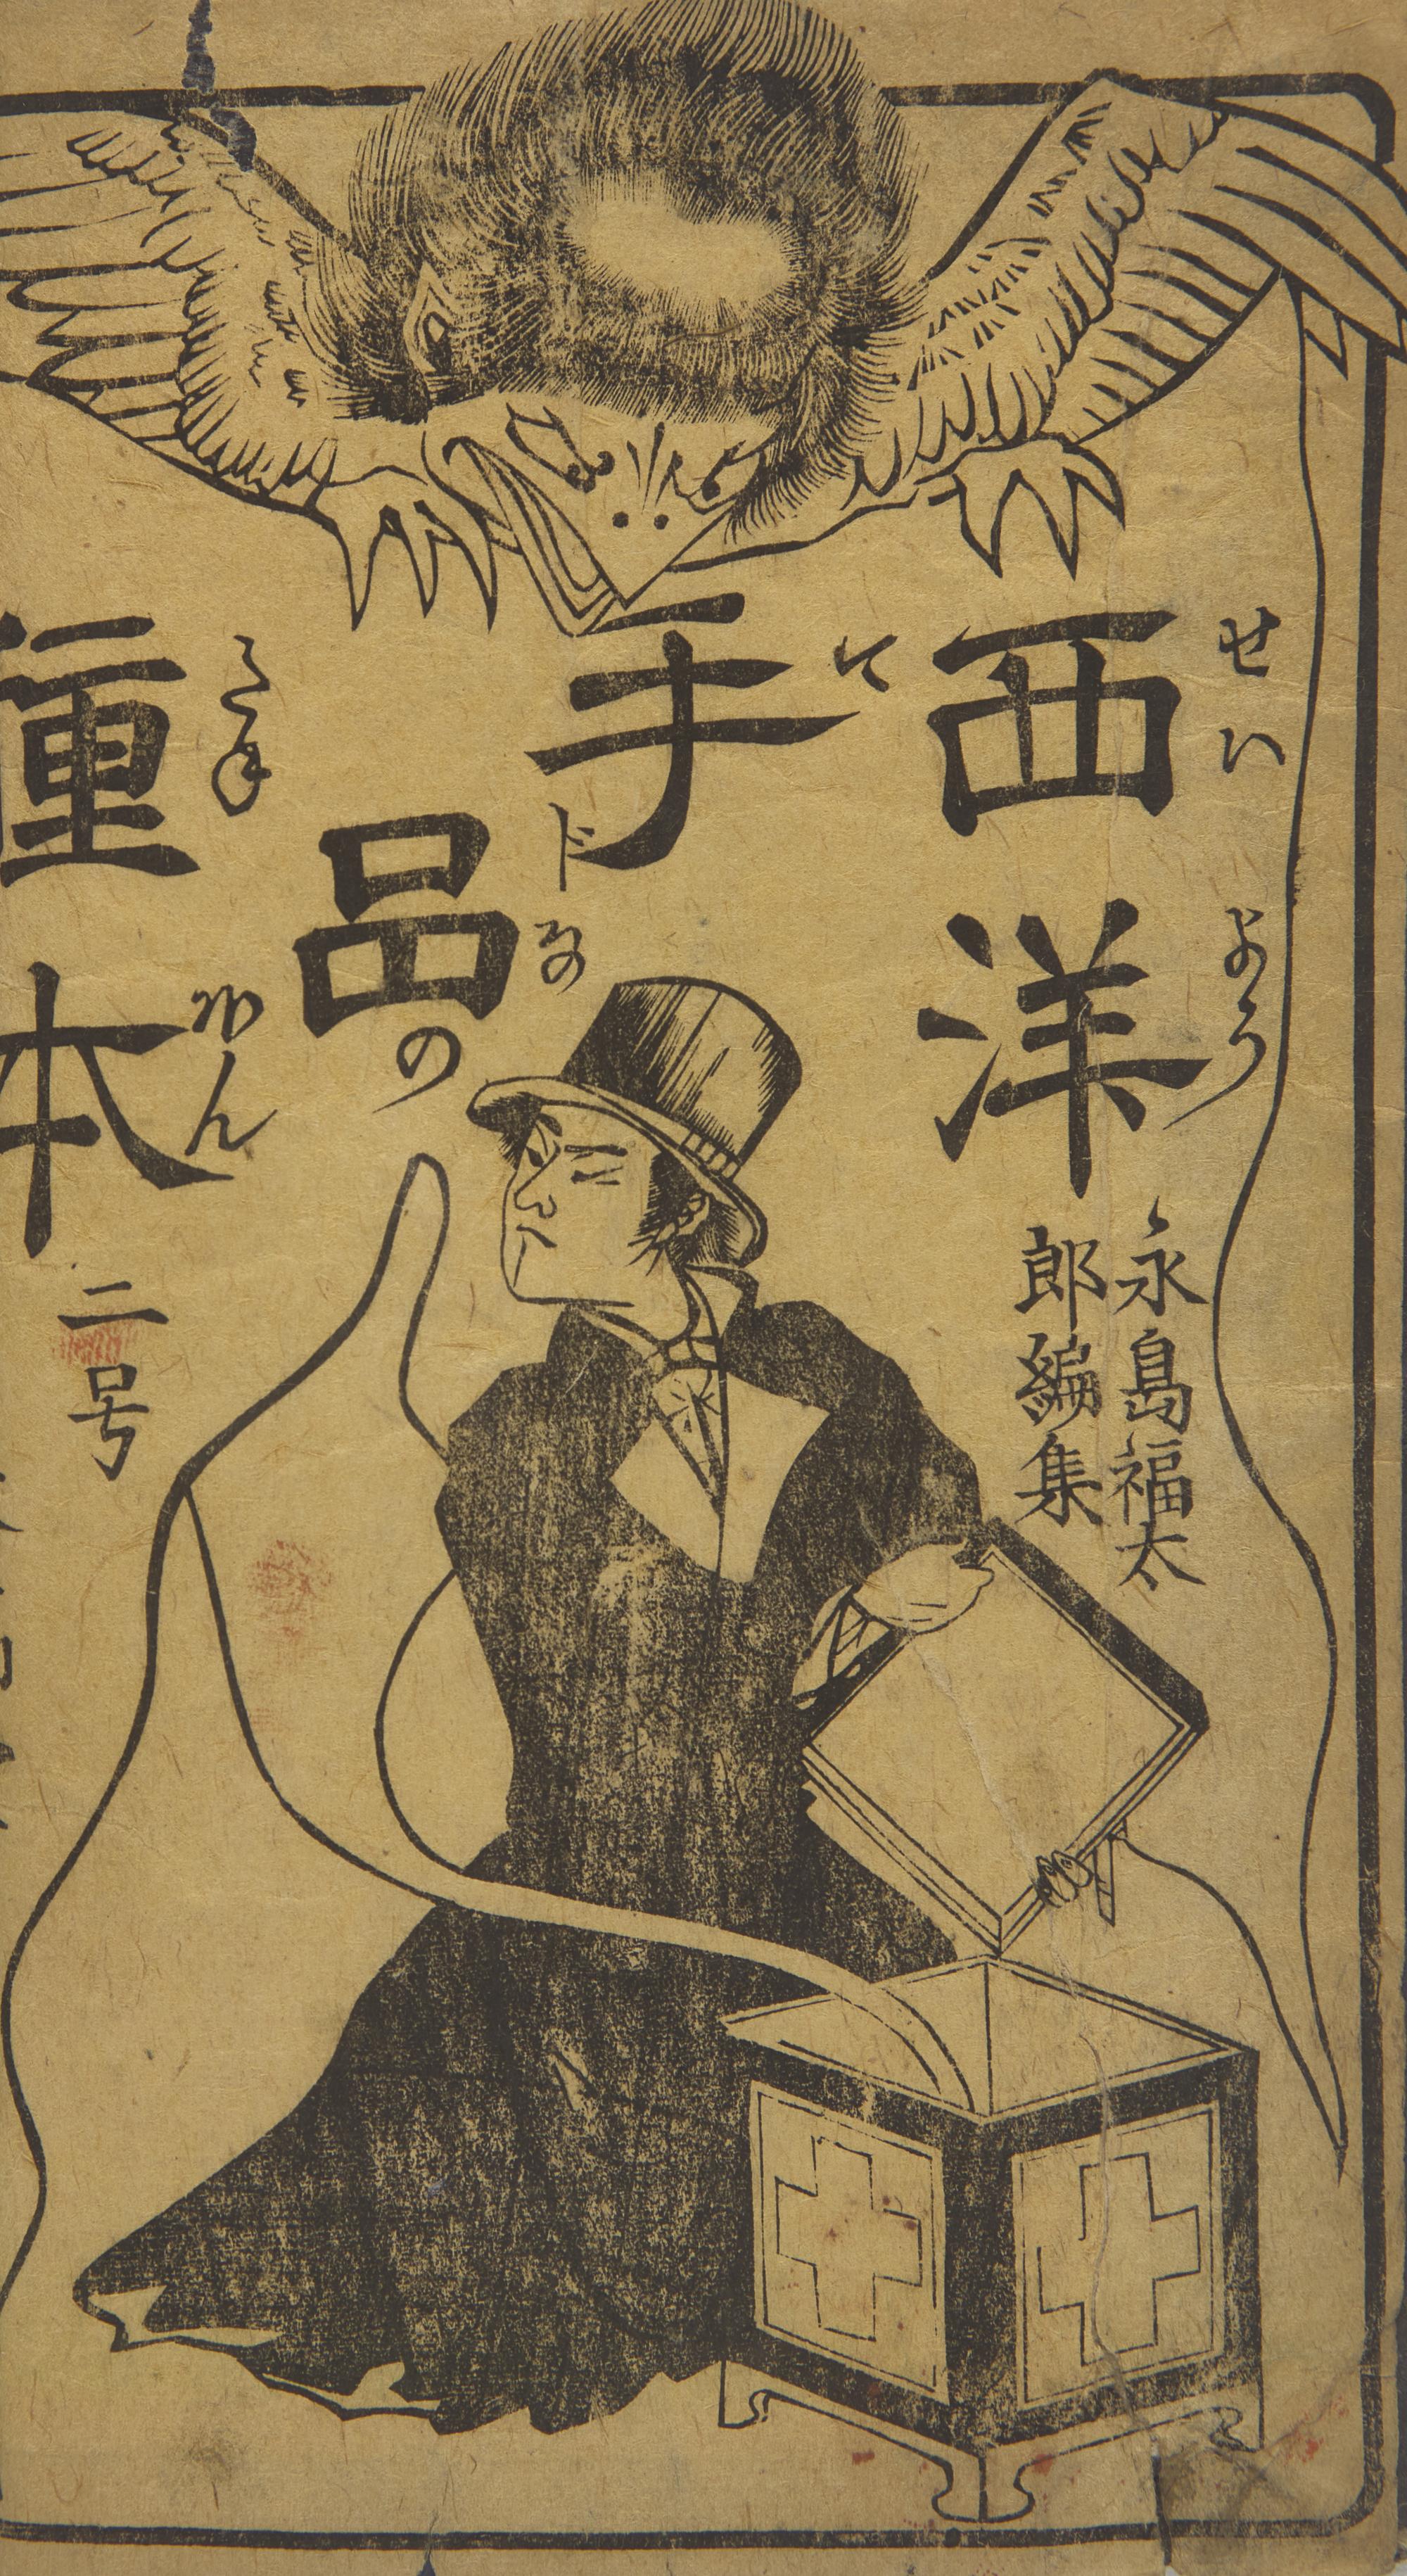 せいよう
西洋
永島福太
郎編集
手品の
たね
ほん
種本
二号